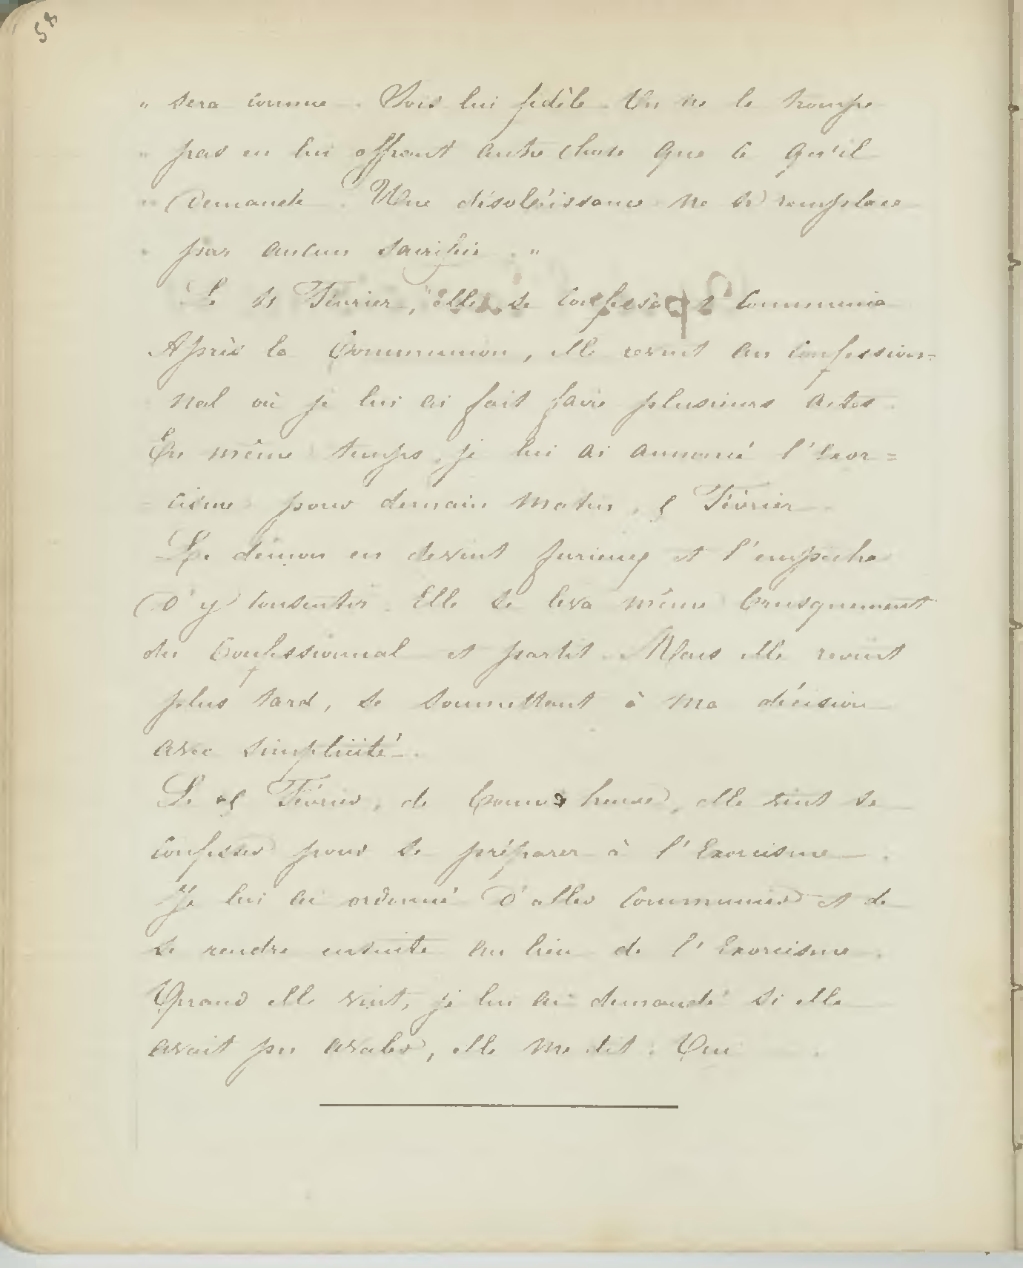 58
" sera connue. Sois lui fidèle. On ne le trompe
" pas en lui offrant autre chose que ce qu'il
" demande. Une désobéissance ne se remplace
" par aucun sacrifice. "
Le Février, elle se confessa et communia
Après la Communion, elle revint au confession=
nal où je lui ai fait faire plusieurs actes.
En même temps, je lui ai annoncé l'Exor=
cisme pour demain matin, Février.
Le démon en devint furieux et l'empêcha
d'y consentir. Elle se leva même brusquement
du Confessionnal et partit. Mais elle revint
plus tard, se soumettant à ma décision
avec simplicité.
Le Février, de bonne heure, elle vint se
confesser pour se préparer à l'Exorcisme.
Je lui ai ordonné d'aller communier et de
se rendre ensuite au lieu de l'Exorcisme.
Quand elle vint, je lui ai demandé si elle
avait pu avaler, elle me dit : Oui